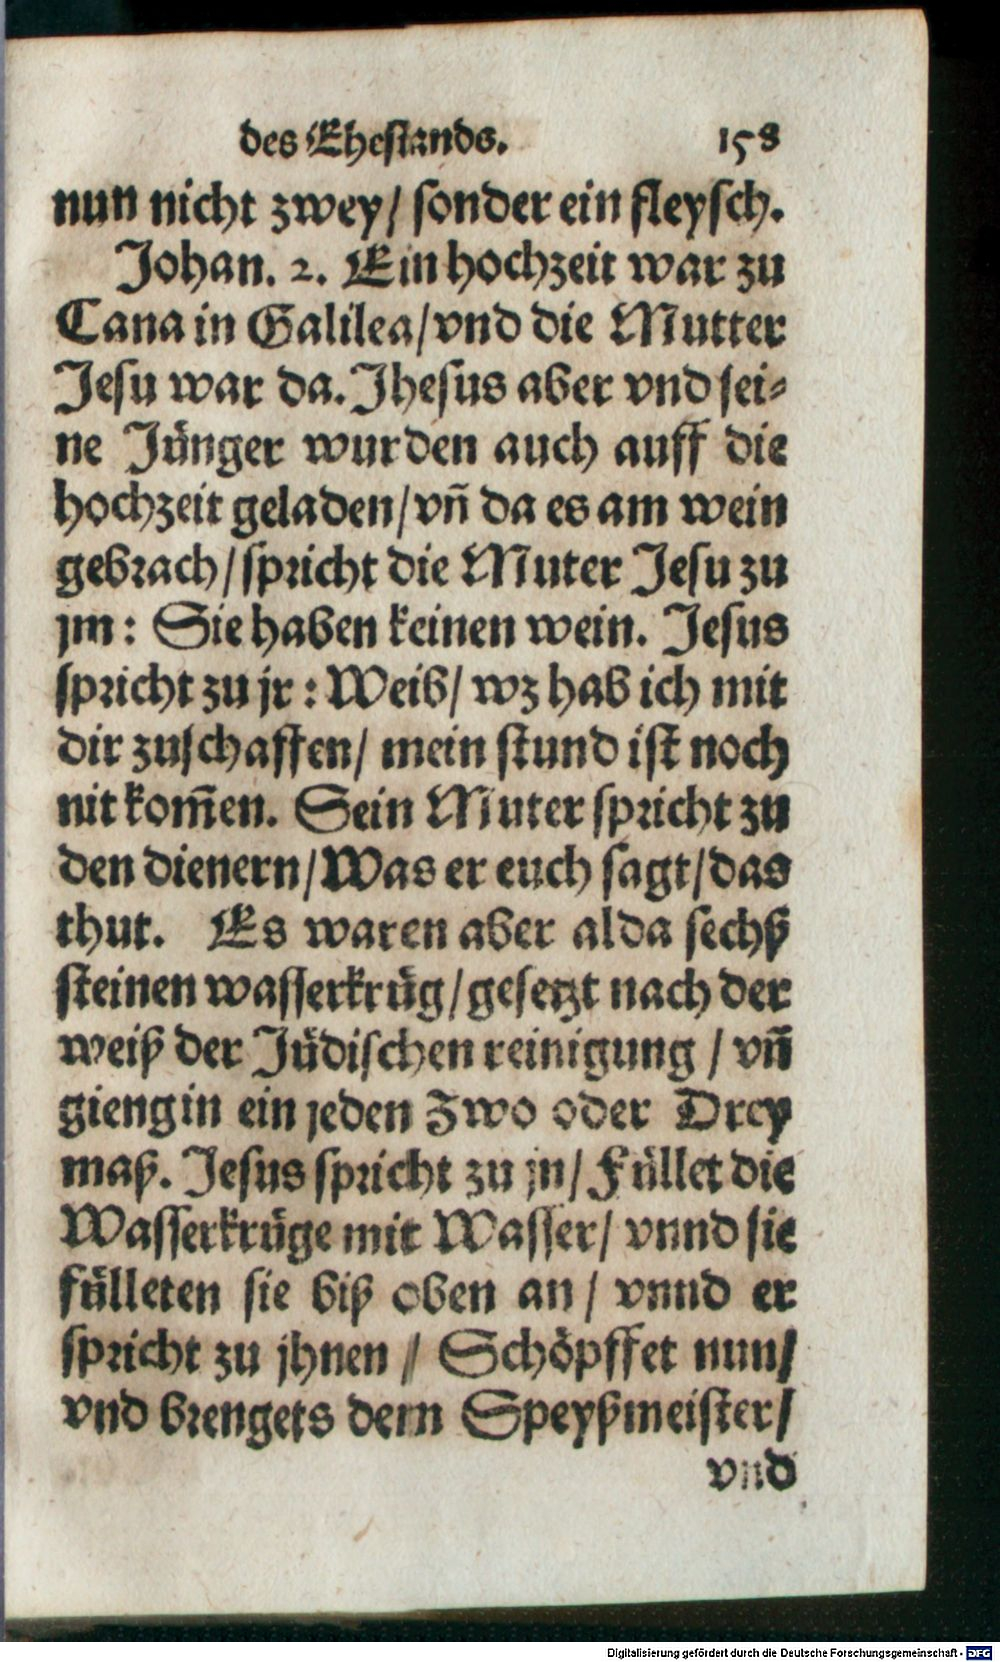 des Ehestands. 158
nun nicht zwey/ sonder ein fleysch.
Johan. 2. Ein hochzeit war zu
Cana in Galilea/ vnd die Mutter
Jesu war da. Jhesus aber vnd sei-
ne Jünger wurden auch auff die
hochzeit geladen/ vñ da es am wein
gebrach/ spricht die Muter Jesu zu
jm: Sie haben keinen wein. Jesus
spricht zu jr: Weib/ wz hab ich mit
dir zuschaffen/ mein stund ist noch
nit kom̃en. Sein Muter spricht zu
den dienern/ Was er euch sagt/ das
thut. Es waren aber alda sechß
steinen wasserkrüg/ gesetzt nach der
weiß der Jüdischen reinigung / vñ
gieng in ein jeden Zwo oder Drey
maß. Jesus spricht zu jn/ Füllet die
Wasserkrüge mit Wasser/ vnnd sie
fülleten sie biß oben an/ vnnd er
spricht zu jhnen / Schöpffet nun/
vnd brengets dem Speyßmeister/
vnd
Digitalisierung gefördert durch die Deutsche Forschungsgemeinschaft - DFG